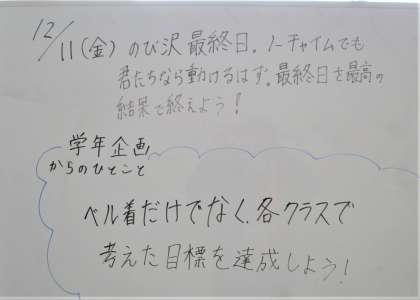 12/11(金) のび沢 最終日。ノーチャイムでも
君たちなら動けるはず。最終日を最高の
結果で終えよう!
学年企画
からのひとこと
ベル着だけでなく、各クラスで
考えた目標を達成しよう!